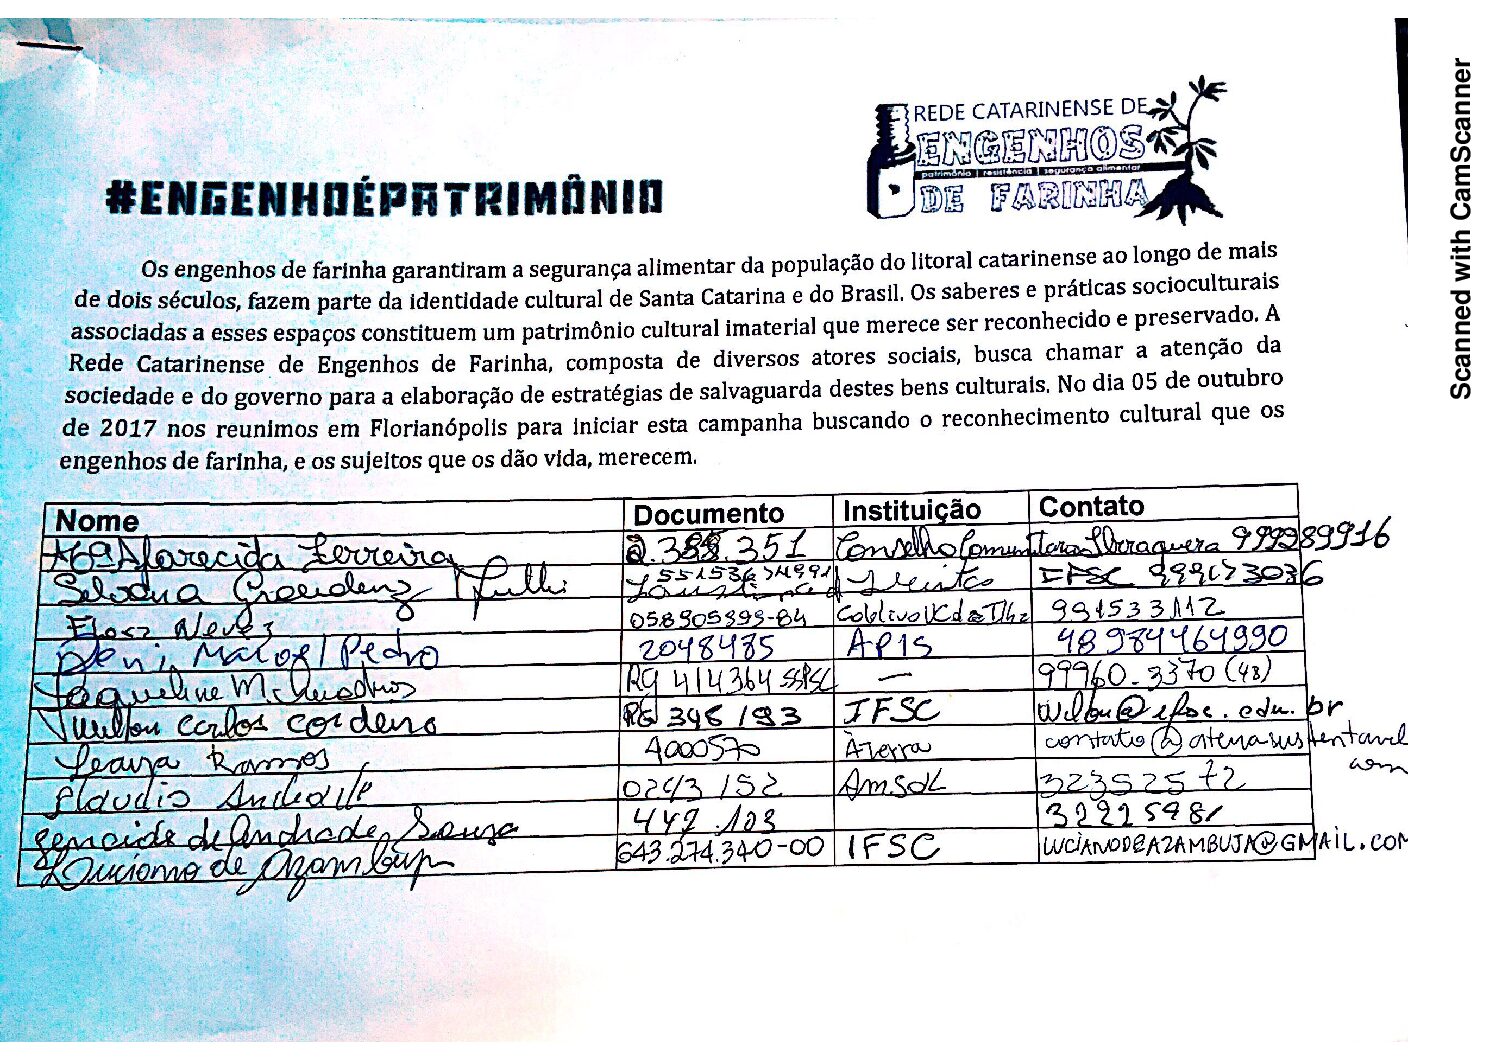 REDE CATARINENSE DE
ENGENHOS
patrimônio | resistência | segurança alimentar
DE FARINHA
#ENGENHOÉPATRIMÔNIO
Os engenhos de farinha garantiram a segurança alimentar da população do litoral catarinense ao longo de mais
de dois séculos, fazem parte da identidade cultural de Santa Catarina e do Brasil. Os saberes e práticas socioculturais
associadas a esses espaços constituem um patrimônio cultural imaterial que merece ser reconhecido e preservado. A
Rede Catarinense de Engenhos de Farinha, composta de diversos atores sociais, busca chamar a atenção da
sociedade e do governo para a elaboração de estratégias de salvaguarda destes bens culturais. No dia 05 de outubro
de 2017 nos reunimos em Florianópolis para iniciar esta campanha buscando o reconhecimento cultural que os
engenhos de farinha, e os sujeitos que os dão vida, merecem.
Nome Documento Instituição Contato
Mª Aparecida Ferreira 2.388.351 Conselho Comunitara Ibiraquera 999289916
IFSC 999673036
Neves 058905999-84 991533112
Deni Manoel Pedro 2048485 APIS 48984464990
Jaqueline M. RG 414364 SSPSC — 99960.3370 (48)
Wilson Carlos Cordeiro RG 346193 IFSC
Ramos 4000570 Àterra contato@
Claudio Andrade 0243152 Amsol 32352572
Genoide de Andrade Souza 449.103 32225981
Luciano de Azambuja 643.274.340-00 IFSC LUCIANODEAZAMBUJA@GMAIL.COM
Scanned with CamScanner